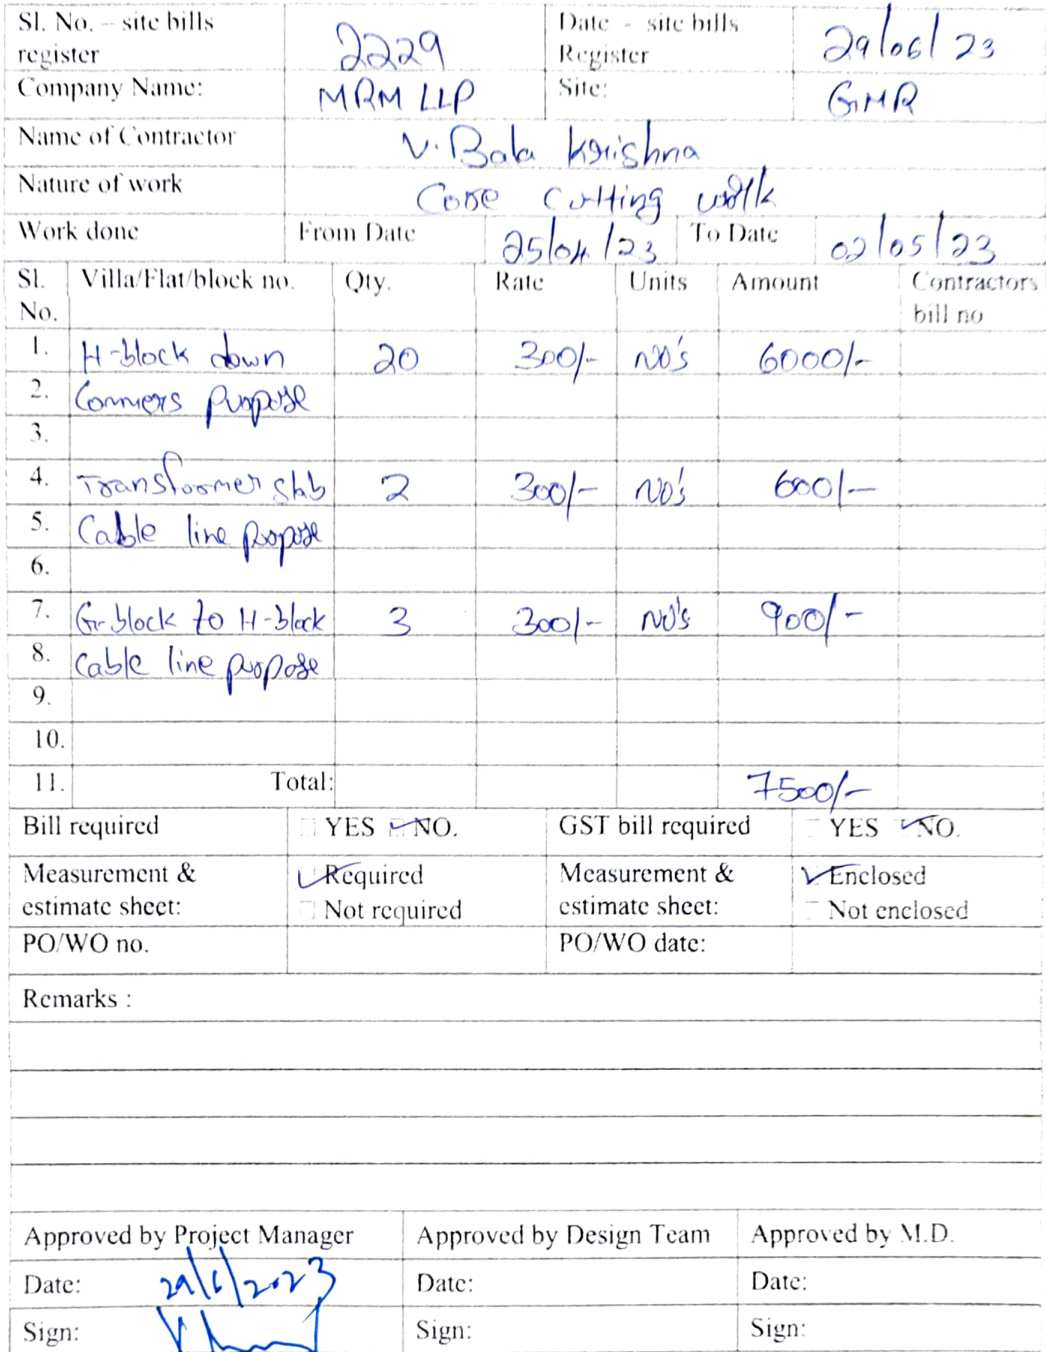 Sl. No. – site bills register 2229 Date - site bills Register 29/06/23
Company Name: MRM LLP Site: GMR
Name of Contractor V. Bala Krishna
Nature of work Core cutting work
Work done From Date 25/04/23 To Date 02/05/23
Sl. No. Villa/Flat/block no. Qty. Rate Units Amount Contractors bill no
1. H-block down 20 300/- NO's 6000/-
2. Comers purpose
3.
4. Transformer slab 2 300/- NO's 600/-
5. Cable line purpose
6.
7. G-block to H-block 3 300/- NO's 900/-
8. Cable line purpose
9.
10.
11. Total: 7500/-
Bill required YES NO. GST bill required YES NO.
Measurement & estimate sheet: Required Measurement & estimate sheet: Enclosed
Not required Not enclosed
PO/WO no. PO/WO date:
Remarks :
Approved by Project Manager Approved by Design Team Approved by M.D.
Date: 29/6/2023 Date: Date:
Sign: Sign: Sign: